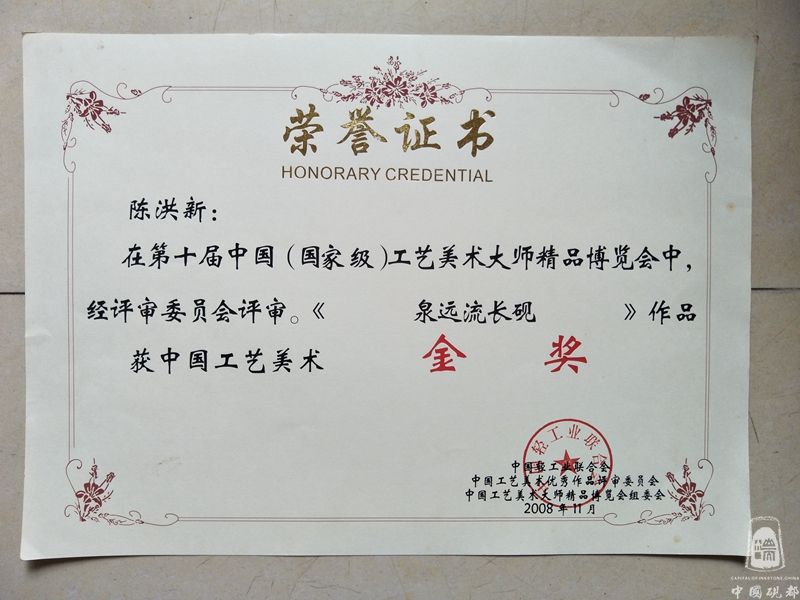 荣誉证书
HONORARY CREDENTIAL
陈洪新：
在第十届中国（国家级）工艺美术大师精品博览会中，
经评审委员会评审。《 泉远流长砚 》作品
获中国工艺美术 金奖
中国轻工业联合会
中国轻工业联合会
中国工艺美术优秀作品评审委员会
中国工艺美术大师精品博览会组委会
2008 年 11 月
CAPITAL OF INKSTONE, CHINA
中國硯都